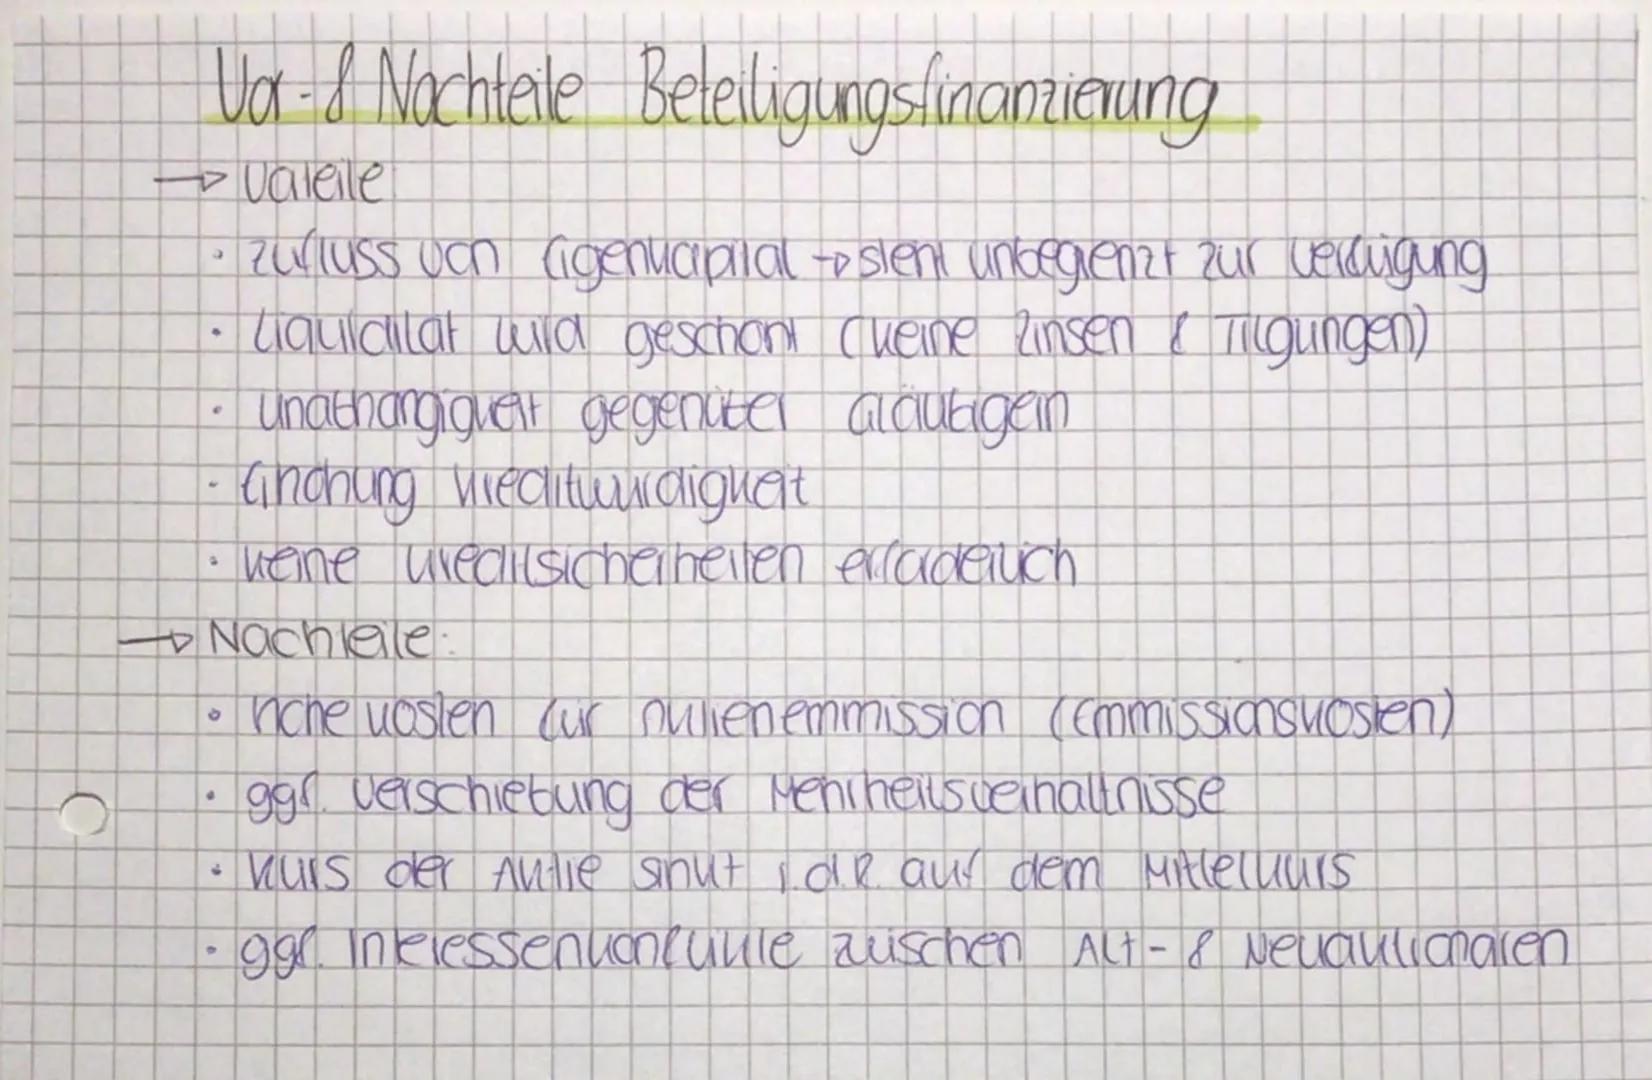 Vor- & Nachteile Beteiligungsfinanzierung
→ Vorteile:
• Zufluss von Eigenkapital → steht unbegrenzt zur Verfügung
• Liquidität wird geschont (keine Zinsen & Tilgungen)
• Unabhängigkeit gegenüber Gläubigern
• Erhöhung Kreditwürdigkeit
• keine Kreditsicherheiten erforderlich
→ Nachteile:
• hohe Kosten für Aktienemmission (Emmissionskosten)
• ggf. Verschiebung der Mehrheitsverhältnisse
• Kurs der Aktie sinkt i.d.R. auf dem Mittelkurs
• ggf. Interessenkonflikte zwischen Alt- & Neuaktionären